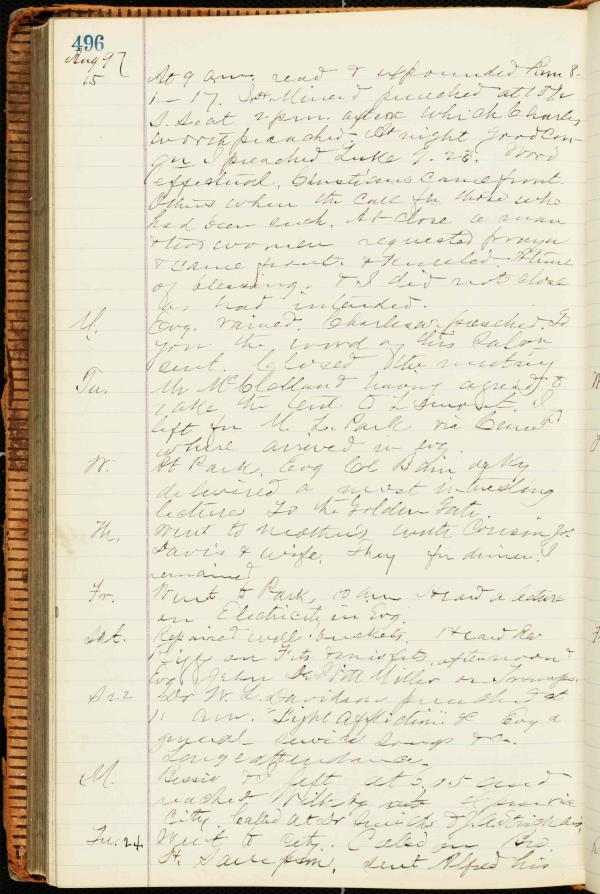 496
Aug 97
15 At 9 am. read & expounded Rom 8-
1-17. J. H. Miner'd preached at 10 ½
S. S. at 2 p.m. after which Charles
worth preached. At night good con-
gn I preached Luke 7. 23. Word
effectual. Christians came front.
Others when the call for those who
had been such. At close a man
& two women requested prayer
& came front & kneeled. A time
of blessing. & I did not close
as had intended.
M. Evg. rained. Charlesw. preached. To
you the word of this Salvn
sent. Closed the meeting
Tu. Mr McClelland having agreed to
take the tent to I
left for M. L. Park via
where arrived in evg.
W. At Park. Evg Col Bain of Ky
delivered a most interesting
lecture To the Golden Gate.
Th. Went to Mother's with Cousin Jos.
Davis & wife. They for dinner. I
remained
Fr. Went to Park, 10 am Heard a lecture
on Electricity in Evg.
Sat. Repaired well buckets. Heard Rev
on Fits & misfits, afternoon &
Evg John DeWitt Miller on
S 22 Dr W. L. Davidson preached at
11 am. "Light affliction" &c Evg a
general service songs &c.
Large attendance.
M. Bessie & I left at 3.05 and
reached via
City. Called at Dr Smith's &
Tu. 24 Went to City. Called on Bro.
H. Sampson, sent Alfred his